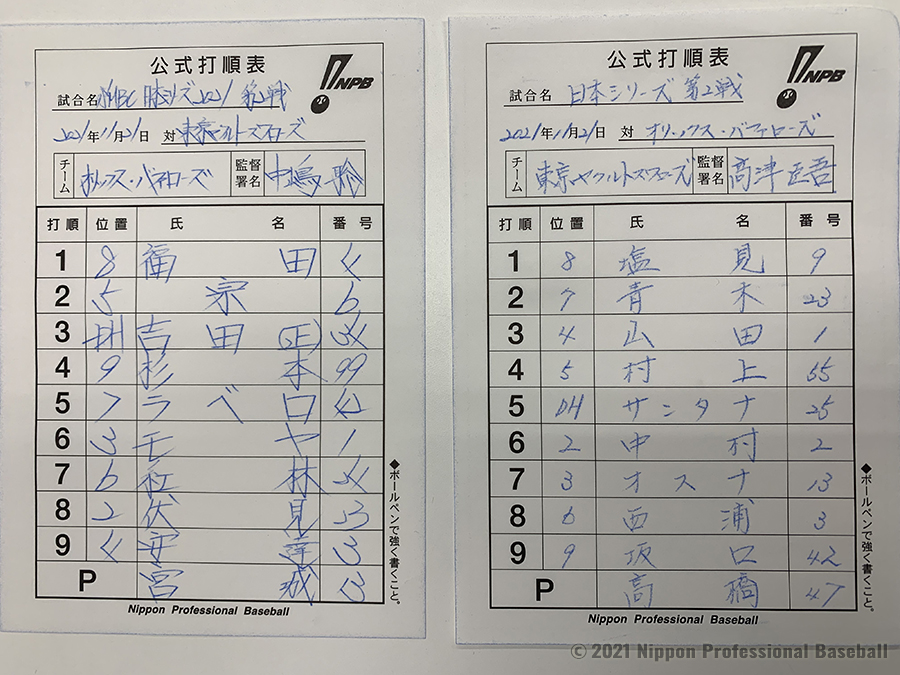 公式打順表
NPB
試合名 SMBC 日本シリーズ2021 第2戦
2021年11月21日 対 東京ヤクルトスワローズ
チーム オリックス・バファローズ 監督署名 中嶋 聡
打順 位置 氏 名 番号
1 8 福 田 4
2 5 宗 6
3 DH 吉 田 (正) 34
4 9 杉 本 99
5 7 ラ ベ ロ 42
6 3 モ ヤ 1
7 6 紅 林 24
8 2 伏 見 23
9 4 安 達 3
P 宮 城 13
◆ボールペンで強く書くこと。
Nippon Professional Baseball
公式打順表
NPB
試合名 日本シリーズ 第2戦
2021年11月21日 対 オリックス・バファローズ
チーム 東京ヤクルトスワローズ 監督署名 高津 臣吾
打順 位置 氏 名 番号
1 8 塩 見 9
2 7 青 木 23
3 4 山 田 1
4 5 村 上 55
5 DH サ ン タ ナ 25
6 2 中 村 2
7 3 オ ス ナ 13
8 6 西 浦 3
9 9 坂 口 42
P 高 橋 47
◆ボールペンで強く書くこと。
Nippon Professional Baseball
© 2021 Nippon Professional Baseball